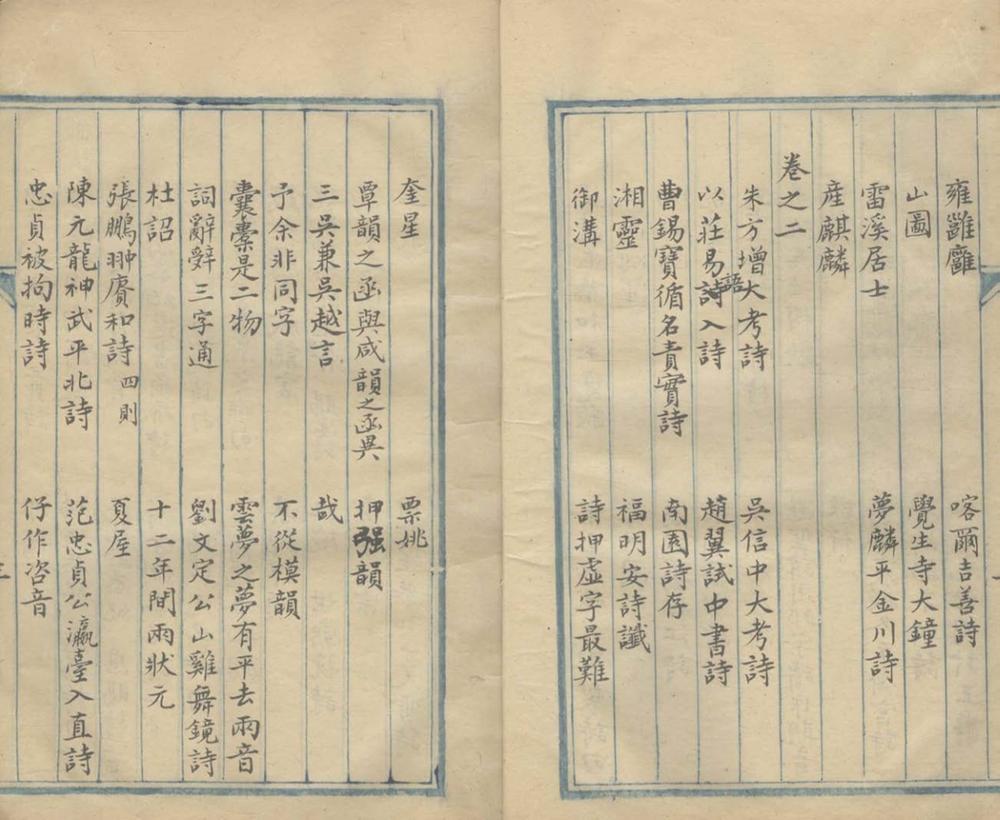 雍雝廱 喀爾吉善詩
山圖 覺生寺大鐘
雷溪居士 夢麟平金川詩
産麒麟
卷之二
朱方增大考詩 吳信中大考詩
以莊易語詩入詩 趙翼試中書詩
曹錫寶循名責實詩 南園詩存
湘靈 福明安詩讖
御溝 詩押虛字最難
奎星 票姚
覃韻之函與咸韻之函異 押强韻
三吳兼吳越言 哉
予余非同字 不從模韻
囊橐是二物 雲夢之夢有平去兩音
詞辭辤三字通 劉文定公山雞舞鏡詩
杜詔 十二年間兩狀元
張鵬翀賡和詩四則 夏屋
陳元龍神武平北詩 范忠貞公瀛臺入直詩
忠貞被拘時詩 仔作咨音